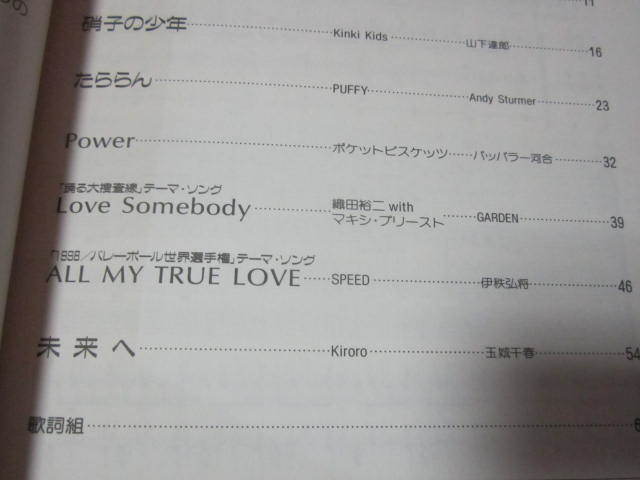 の
11
硝子の少年 Kinki Kids 山下達郎 16
たららん PUFFY Andy Sturmer 23
Power ポケットビスケッツ パッパラー河合 32
「踊る大捜査線」テーマ・ソング
Love Somebody 織田裕二 with マキシ・プリースト GARDEN 39
「1998/バレーボール世界選手権」テーマ・ソング
ALL MY TRUE LOVE SPEED 伊秩弘将 46
未来へ Kiroro 玉城千春 54
歌詞組 6